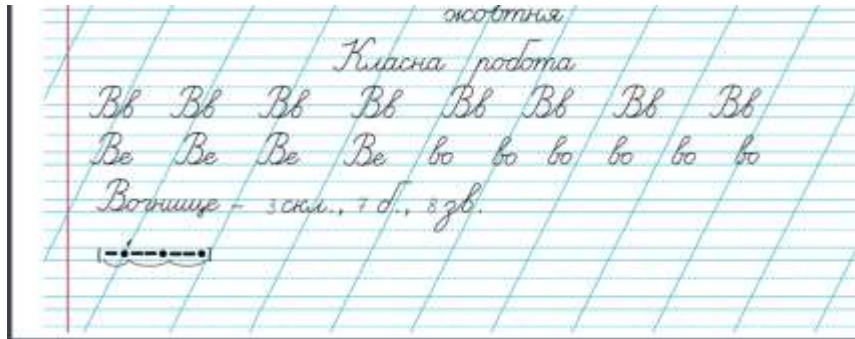 жовтня
Класна робота
Вв Вв Вв Вв Вв Вв Вв Вв
Ве Ве Ве Ве во во во во во во
Вогнище – 3 скл., 7 б., 8 зв.